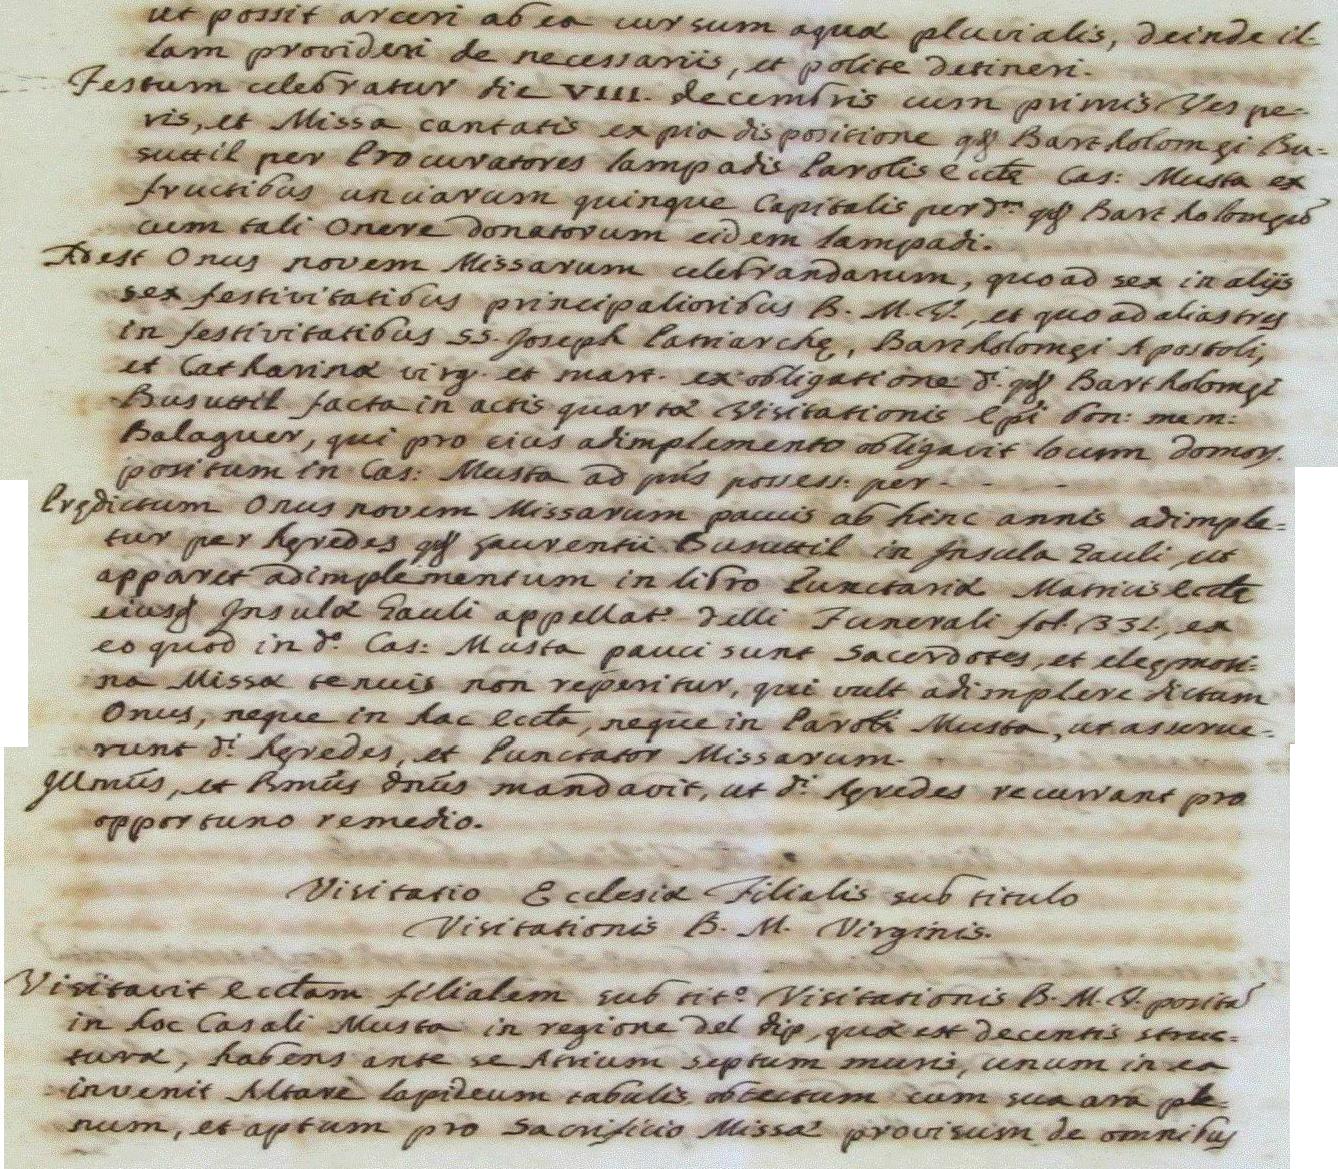 ut possit arceri ab ea cursum aquæ pluvialis, deinde il-
lam provideri de necessariis, et polite detineri.
Festum celebratur die VIII. decembris cum primis Vespe-
ris, et Missa cantatis ex pia dispositione qđ Bartholomęi Bu-
suttil per Procuratores lampadis Parolis Ecclę Cas: Musta ex
fructibus unciarum quinque Capitalis per d.m qđ Bartholomęũ
cum tali Onere donatorum eidem lampadi.
Adest Onus novem Missarum celebrandarum, quo ad sex in alijs
sex festivitatibus principalioribus B. M. V., et quo ad alias tres
in festivitatibus SS. Joseph Patriarchę, Bartholomęi Apostoli,
et Catharinæ virg. et mart. ex obligatione d.i qđ Bartholomęi
Busuttil facta in actis quartæ Visitationis Epi bon: mem:
Balaguer, qui pro eius adimplemento obligavit locum domorũ
positum in Cas: Musta ad pñs possess: per - - -
Prędictum Onus novem Missarum paucis ab hinc annis adimple-
tur per hęredes qđ Laurentii Busuttil in Insula Gauli, ut
apparet adimplementum in libro Punctariæ Matricis Ecclę
eiusđ Insulæ Gauli appellat.o delli Funerali fol. 331, ex
eo quod in d.o Cas: Musta pauci sunt Sacerdotes, et eleęmosi-
na Missæ tenuis non reperitur, qui vult adimplere dictum
Onus, neque in hac Eccla, neque in Paroli Musta, ut asserue-
runt d.i hęredes, et Punctator Missarum.
Illmũs, et Rmũs Dnũs mandavit, ut d.i hęredes recurrant pro
opportuno remedio.
Visitatio Ecclesiæ Filialis sub titulo
Visitationis B. M. Virginis.
Visitavit Ecclam filialem sub tit.o Visitationis B. M. V. positã
in hoc Casali Musta in regione del dip, quæ est decentis struc-
turæ, habens ante se Atrium septum muris, unum in ea
invenit Altare lapideum tabulis obtectum cum sua ara ple-
num, et aptum pro Sacrificio Missæ provisum de omnibus